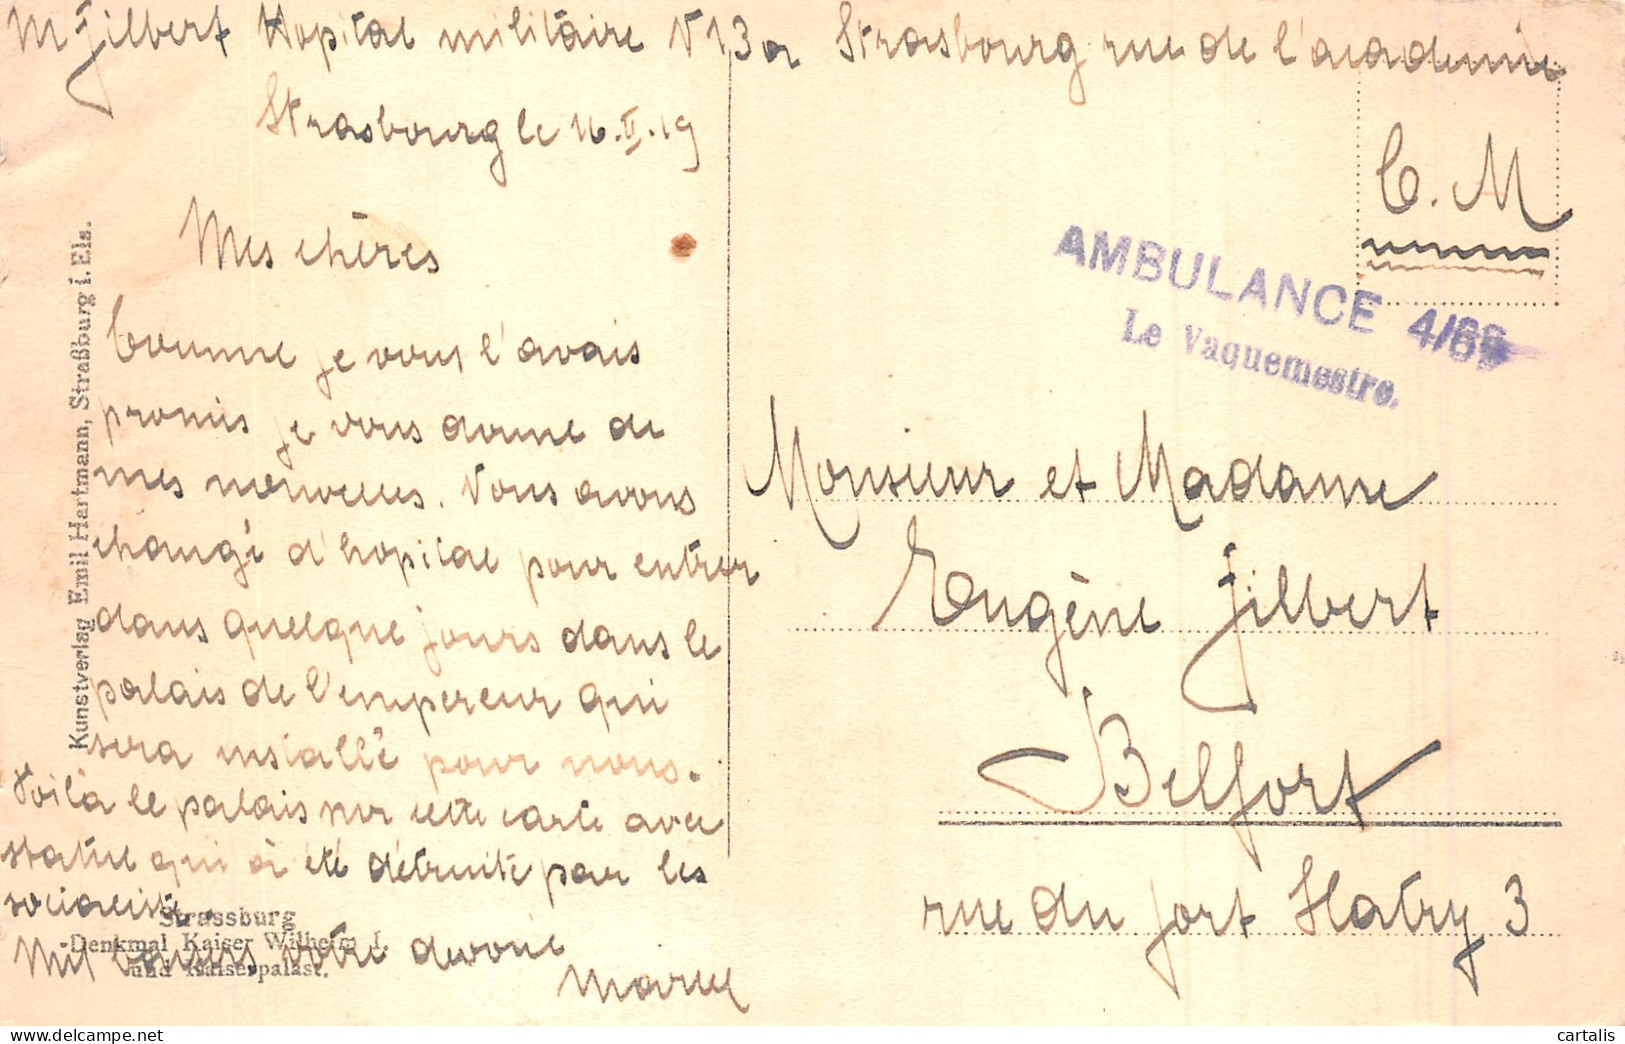 M Jilbert Hopital militaire N 13 a Strasbourg rue de l'academie
Strasbourg le 16.II.19
Mes chères
Comme je vous l'avais
promis je vous donne de
mes nouvelles. Nous avons
changé d'hopital pour entrer
dans quelque jours dans le
palais de l'empereur qui
sera installé pour nous.
Voilà le palais sur cette carte avec
statue qui a été détruite par les
socialiste.
Mil baisers votre devoué
Marcel
C.M
AMBULANCE 4/66
Le Vaquemestre.
Monsieur et Madame
Eugène Jilbert
Belfort
rue du fort Hatry 3
Kunstverlag Emil Hartmann, Straßburg i. Els.
Strassburg
Denkmal Kaiser Wilhelm I.
und Kaiserpalast.
cartalis